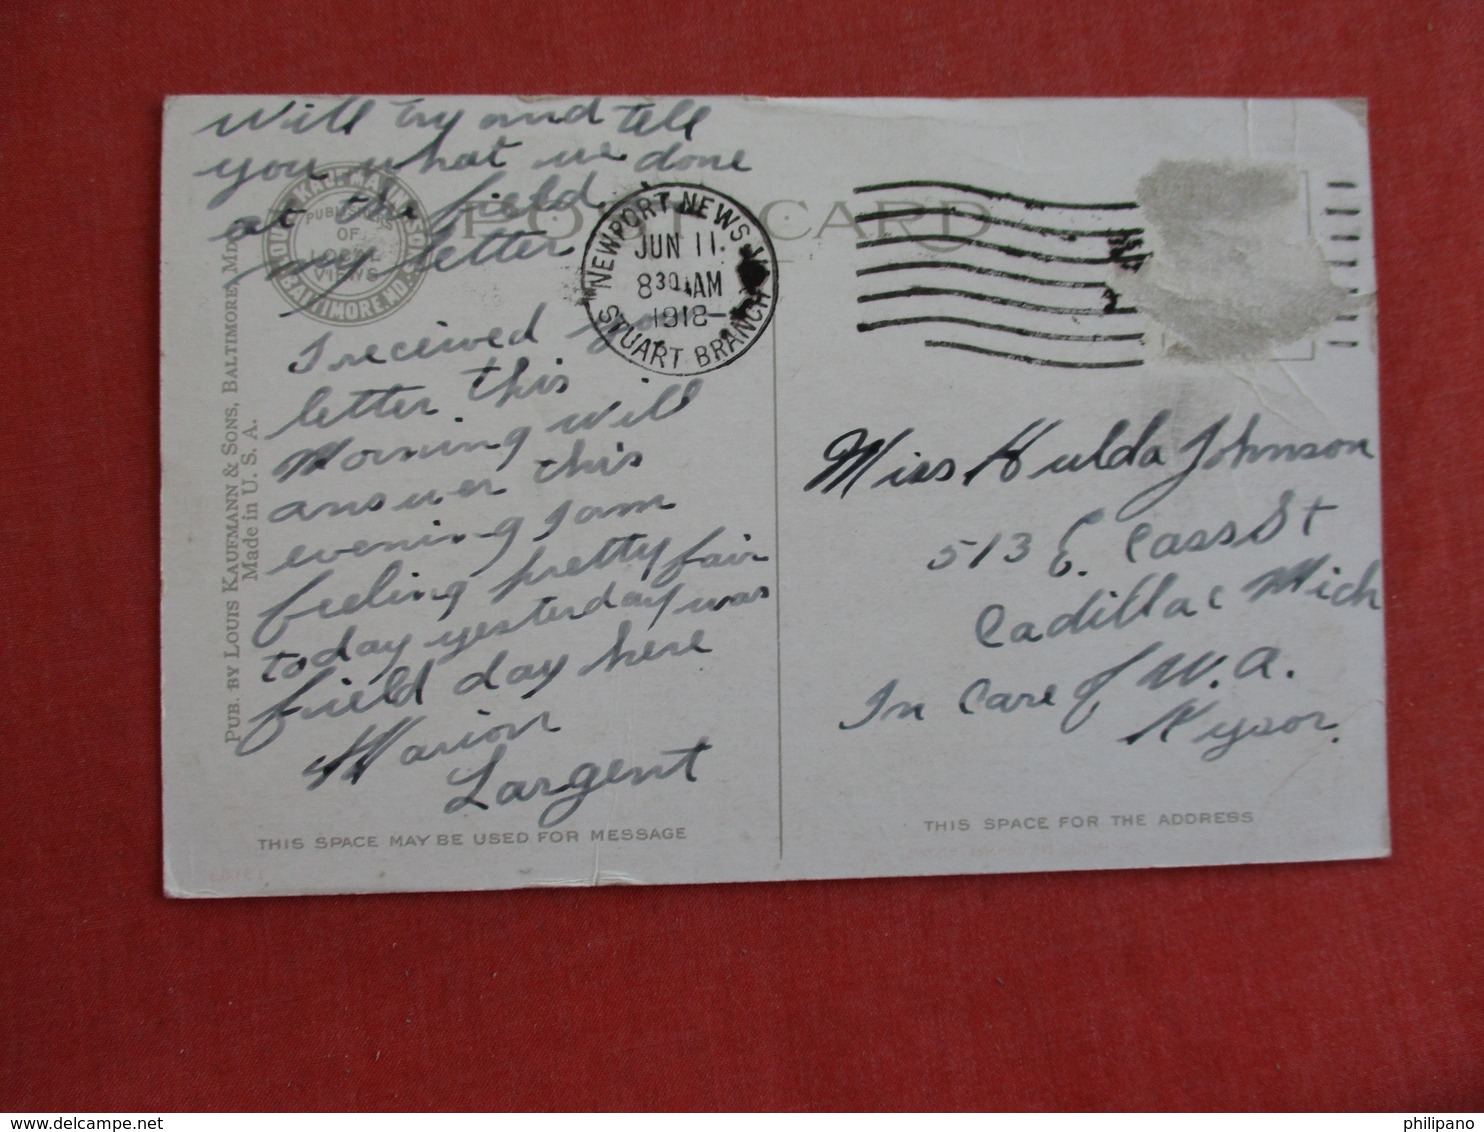 Will try and tell
you what we done
at the field
my letter
I received your
letter this
morning will
answer this
evening I am
feeling pretty fair
today yesterday was
field day here
Marion
Largent
THIS SPACE MAY BE USED FOR MESSAGE
PUB. BY LOUIS KAUFMANN & SONS, BALTIMORE, MD.
Made in U. S. A.
LOUIS KAUFMANN & SONS
PUBLISHERS
OF
LOCAL
VIEWS
BALTIMORE, MD.
POST CARD
NEWPORT NEWS, VA
JUN 11
8 30 AM
1918
STUART BRANCH
Miss Hulda Johnson
513 E. Cass St
Cadillac Mich
In Care of W. A.
Kysor.
THIS SPACE FOR THE ADDRESS
philipano